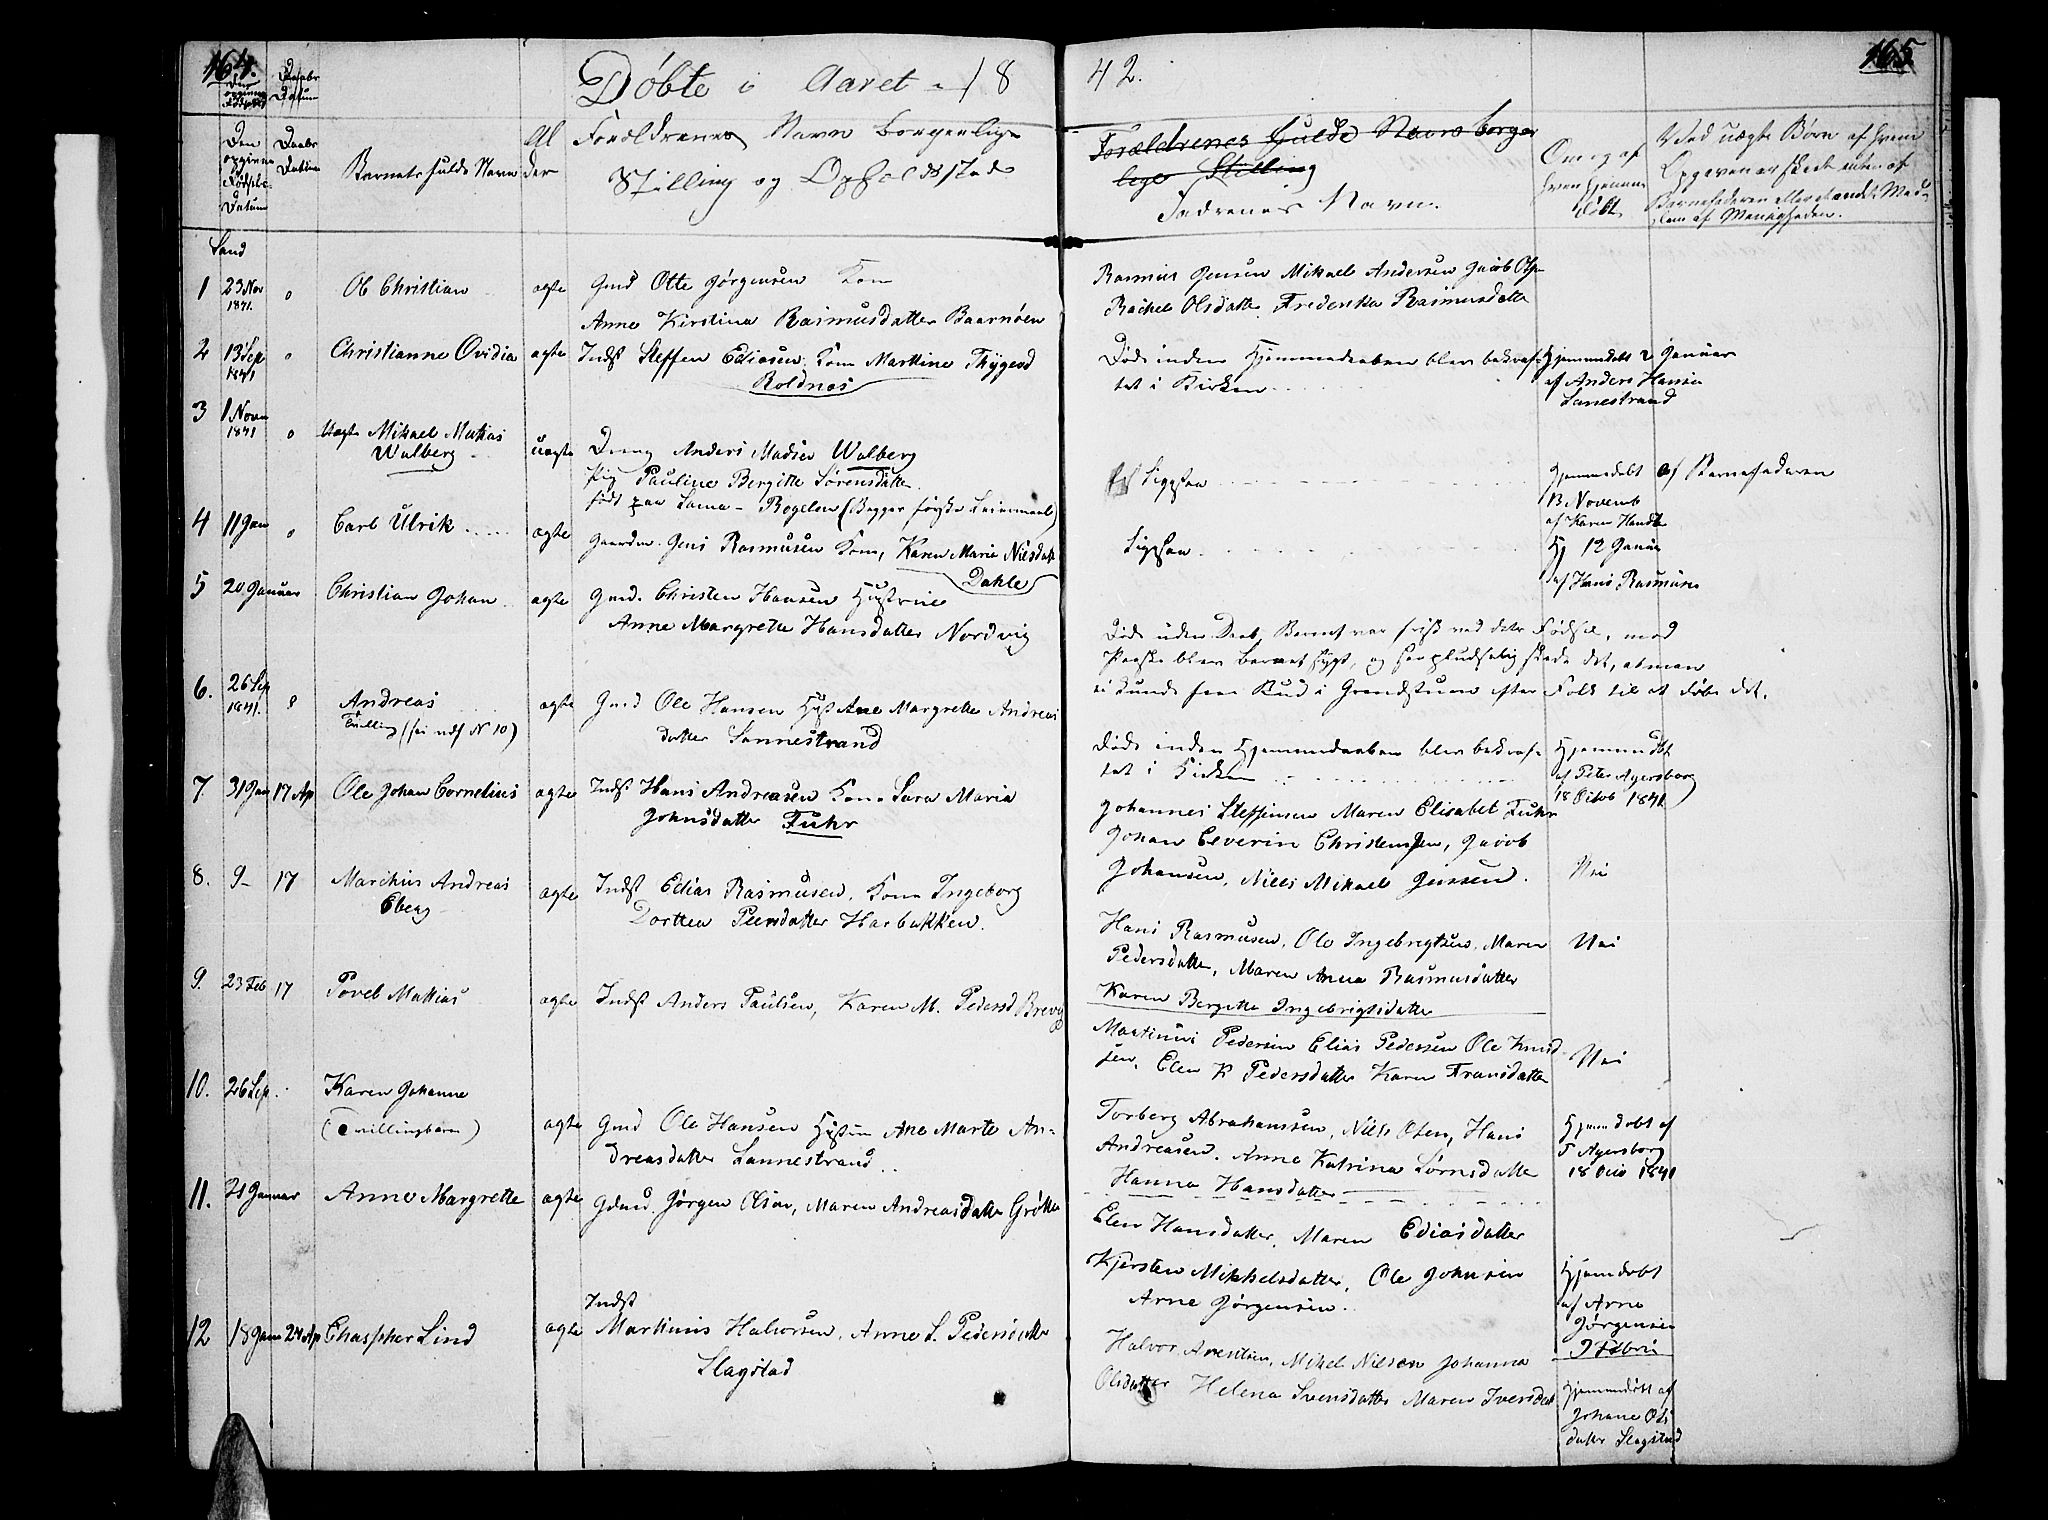 164.
165
Døbte i Aaret 18
42.
Den opgivne Fødsels Datum
Daabs Datum
Barnets fulde Navn
Al der
Forældrenes Navn Borgerlige
Stilling og Opholdssted
Forældrenes fulde Navn borger
lige Stilling
Fadrenes Navn.
Om og af hvem hjemme døbt
Ved uægte Børn af hvem
Opgaven er skeet enten af
Barnefaderen eller et andet Med-
lem af Menigheden.
Sand
1 23 Nov 1841. o Ol Christian ægte Gmd Otte Jørgensen Kone
Anne Kirstina Rasmusdatter Baarnøen
Rasmus Jensen Mikael Andersen Jacob
Rachel Olsdatter Frederikke Rasmusdatter
2 13 Sep 1841 o Christianne Ovidia ægte Indst Steffen Ediasen Kone Martine Thygesd
Roldnæs
Døde inden Hjemmedaaben blev bekræf-
tet i Kirken
Hjemmedøbt 2 Januar
af Anders Hansen
Sannestrand
3 1 Novem 1841 o Uægte Mikael Matias
Walberg
uægte Dreng Anders Madsen Walberg
Pig Pauline Bergitte Sørensdatter
født paa (Begges første Leiermaal)
Hjemmedøbt
13 Novemb
af Karen
af Barnefaderen
4 11 Jan o Carl Ulrik ægte Gaardm. Jens Rasmusen Kone, Karen Marie Nilsdatt
Dahle
Hj 12 Januar
af Hans Rasmusen
5 20 Januar Christian Johan ægte Gmd. Christen Hansen Hustrue
Anne Margrethe Hansdatter Nordvig
Døde uden Daab, Barnet var frisk ved dets Fødsel, med
blev barnet sygt, og saa pludselig skede det, at man
ei kunde faae Bud i Grændstuen efter Folk til at døbe det.
6. 26 Sep 1841. o Andreas
Tvilling (sei nds N 10)
ægte Gmd Ole Hansen Hust Ane Margrethe Andreas
datter Sannestrand
Døde inden Hjemmedaaben blev bekræf-
tet i Kirken
Hjemmedøbt
af Peter Agersborg
18 Octob 1841
7 31 Jan 17 Ap Ole Johan Cornelius ægte Indst Hans Andreasen Kone Sara Maria
Johnsdatter Fuhr
Johannes Steffensen Maren Elisabet Fuhr
Johan Severin Christensen, Jacob
Johansen, Niels Mikael Jensen.
Nei
8. 9 17 Marthus Andreas
Eberg
ægte Indst Edias Rasmusen, Kone Ingeborg
Dorthea Peersdatter Harbakken.
Hans Rasmusen, Ole Ingebregtsen, Maren
Pedersdatter, Maren Anna Rasmusdatter
Karen Bergitte Ingebrigtsdatter
Nei
9. 23 Feb 17 Povel Mathias ægte Indst Anders Paulsen, Karen M. Pedersd Brevig
Martinus Pedersen Elias Pedersen Ole Knud
sen, Elen K Pedersdatter Karen Fransdatter
Nei
10. 26 Sep. Karen Johanne
(Tvillingbarn)
ægte Gmd Ole Hansen Hustrue Ane Marte An-
dreasdatter Sannestrand
Torberg Abrahamsen, Niels Olsen, Hans
Andreasen. Anne Katrina Sørnsdatter
Hanna Hansdatter
Hjemmedøbt af
P Agersborg
18 Octo 1841
11. 21 Januar Anne Margrethe ægte Gdmd. Jørgen Olsen, Maren Andreasdatter Grøtte
Elen Hansdatter, Maren Ediasdatter
Kjersten Mikkelsdatter, Ole Johnsen
Arne Jørgensen.
Hjemdøbt
af Arne
Jørgensen
9 Febru
12 18 Janu 24 Ap Chaspher Lind ægte Indst
Martinus Halvorsen, Anne S. Pedersdatter
Slagstad
Halvor Arentsen, Mikel Nilsen Johanna
Olsdatter Helena Svensdatter Maren Iversdat
Hjemmedøbt af
Johane Ols
datter Slagstad